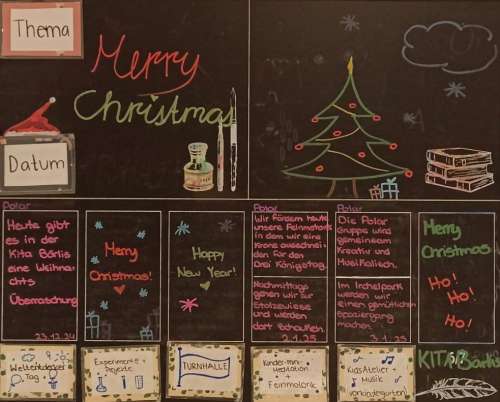 Thema
Merry
Christmas
Datum
Polar
Heute gibt
es in der
Kita Börlis
eine Weihna-
chts
Überraschung
23.12.24
Merry
Christmas!
Happy
New Year!
Polar
Wir fördern heute
unsere Feinmotorik
in dem wir eine
Krone ausschnei-
den für den
Drei Königstag.
Nachmittags
gehen wir zur
Stolzewiese
und werden
dort schaufeln.
2.1.25
Polar
Die Polar
Gruppe wird
gemeinsam
Kreativ und
Musikalisch.
Im Irchelpark
werden wir
einen gemütlichen
Spaziergang
machen.
3.1.25
Merry
Christmas
Ho!
Ho!
Ho!
Weltentdecker
Tag
Experimente +
Projekte
TURNHALLE
Kinder-
Meditation
+
Feinmotorik
Kids Atelier +
Musik
Vorkindergarten
KITA